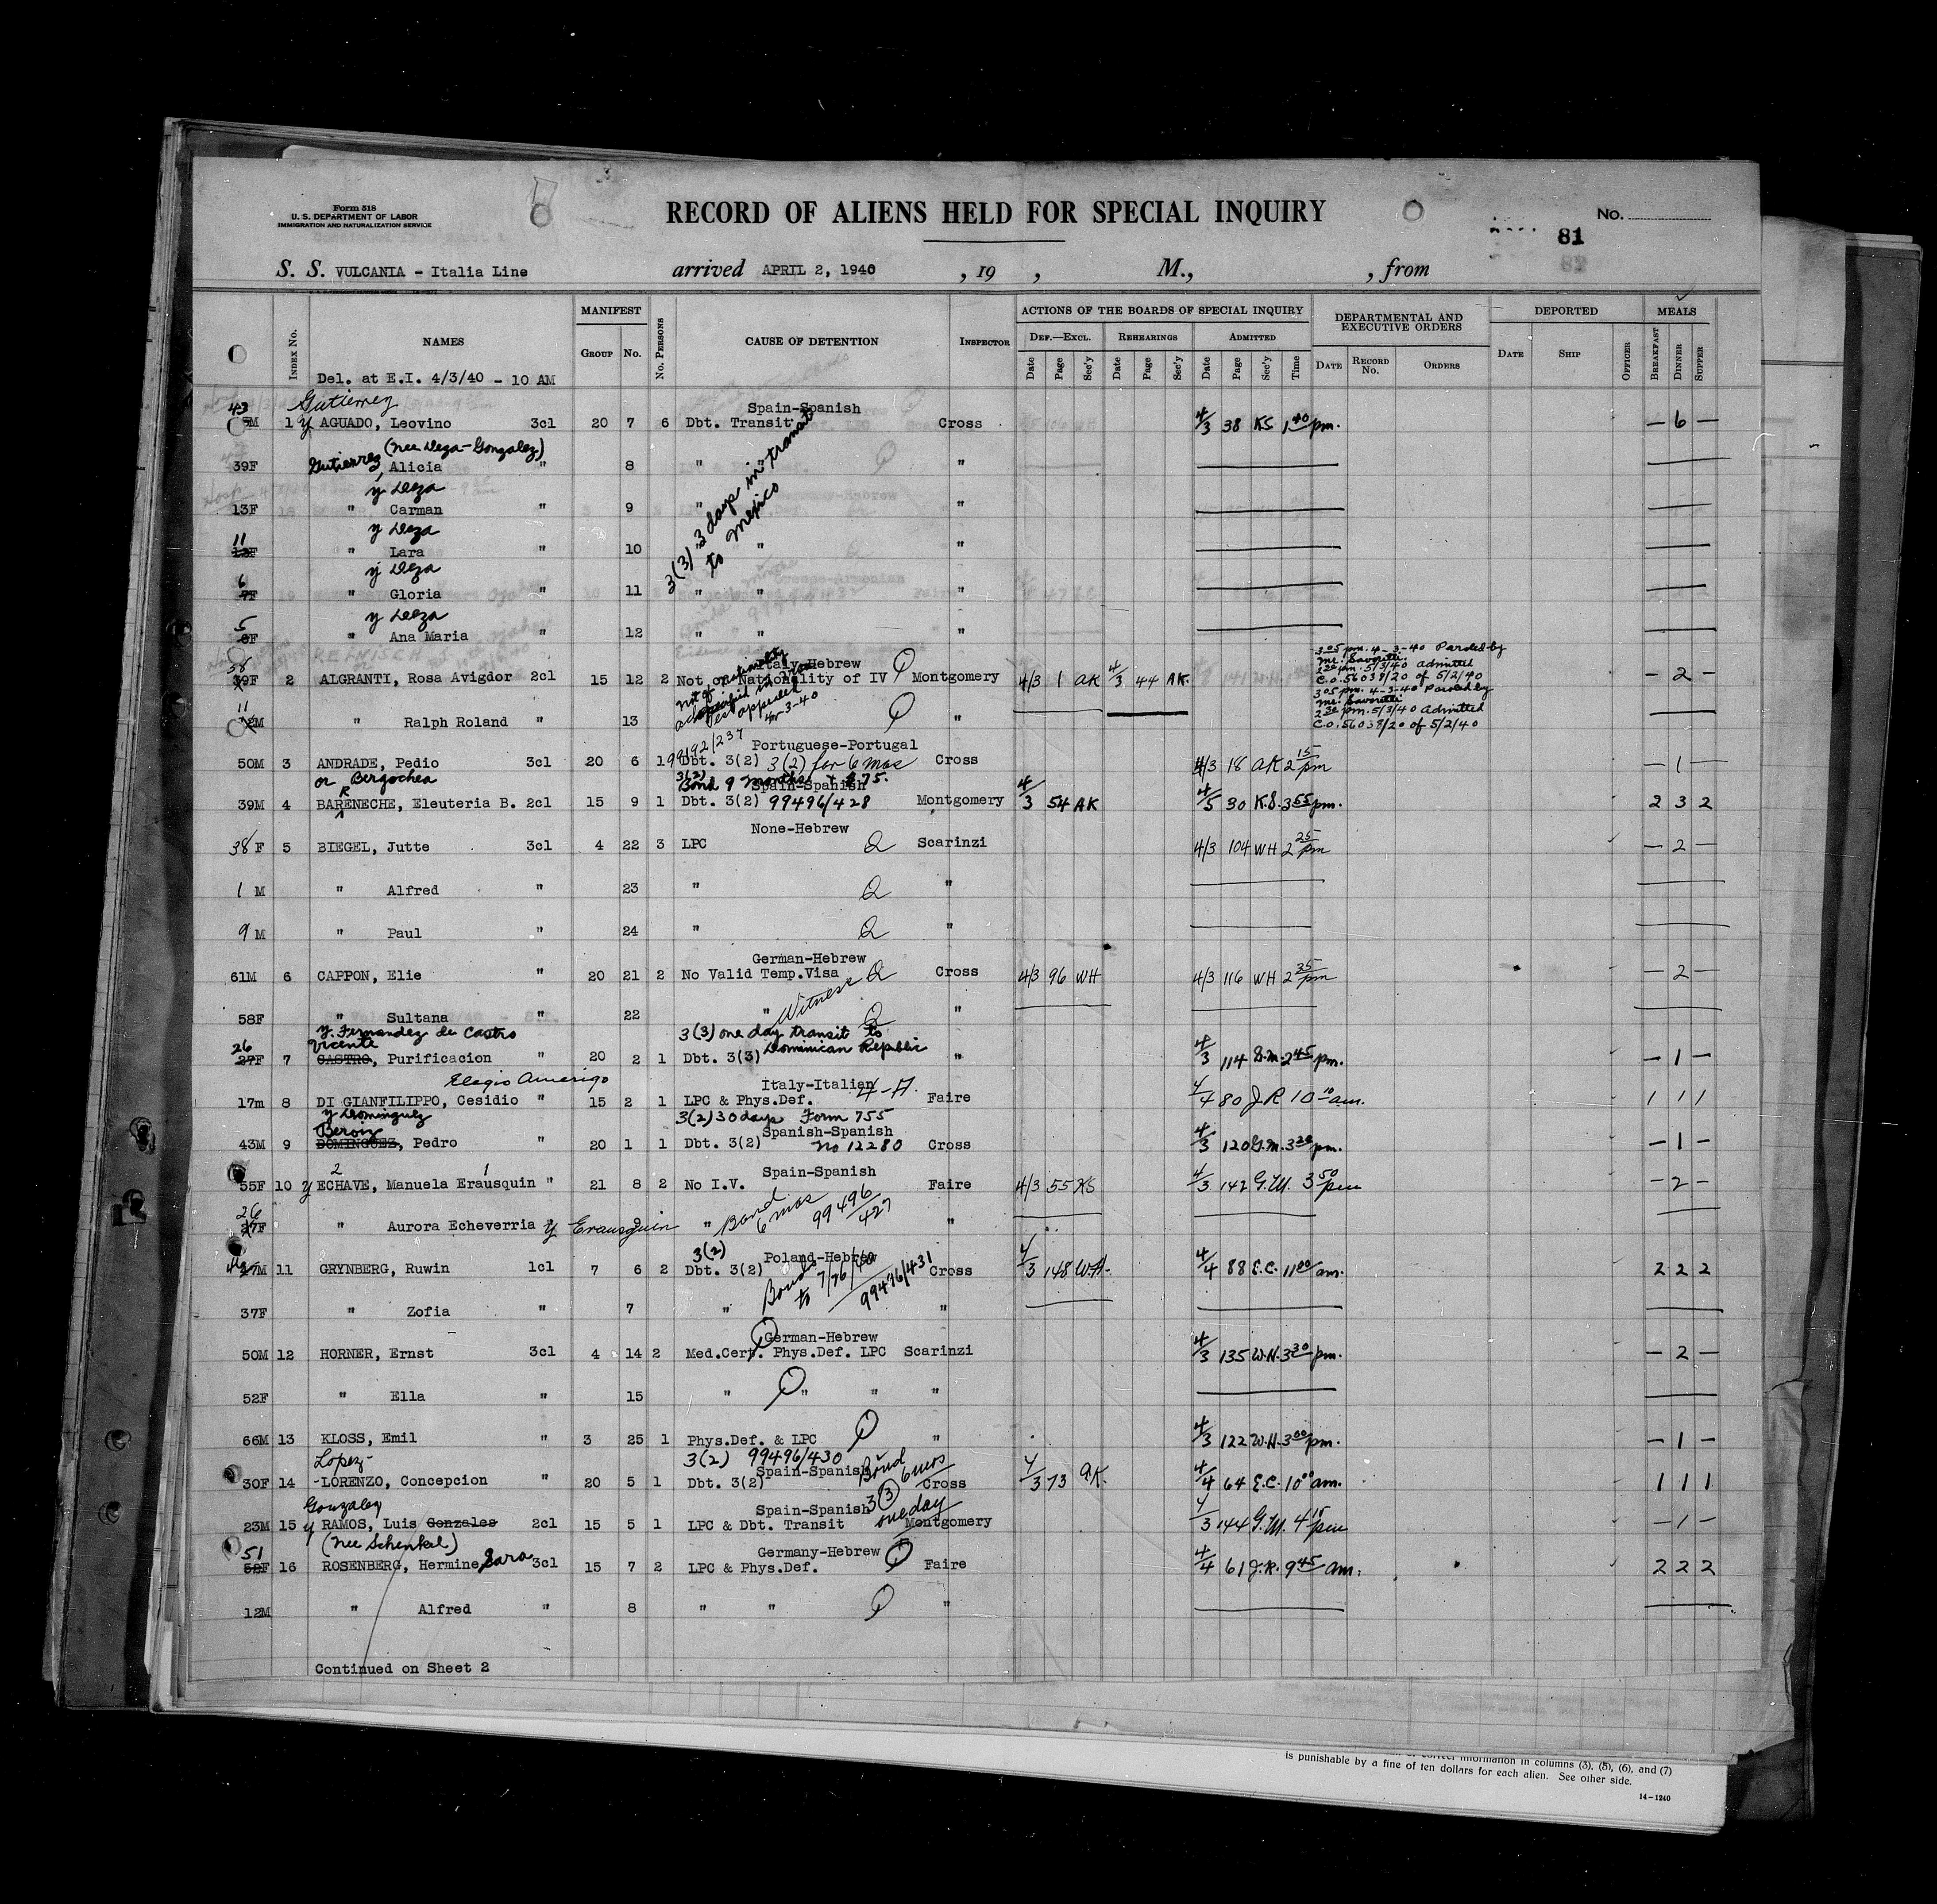 Form 518
U. S. DEPARTMENT OF LABOR
IMMIGRATION AND NATURALIZATION SERVICE
RECORD OF ALIENS HELD FOR SPECIAL INQUIRY
No.
81
S. S. VULCANIA - Italia Line arrived APRIL 2, 1940 , 19 , M., , from
Index No. NAMES MANIFEST Group No. No. Persons CAUSE OF DETENTION Inspector
ACTIONS OF THE BOARDS OF SPECIAL INQUIRY
Def.—Excl. Rehearings Admitted
Date Page Sec'y Date Page Sec'y Date Page Sec'y Time
DEPARTMENTAL AND EXECUTIVE ORDERS
Date Record No. Orders
DEPORTED
Date Ship Officer
MEALS
Breakfast Dinner Supper
Del. at E.I. 4/3/40 - 10 AM
Gutierrez Spain-Spanish
43 M 1 y AGUADO, Leovino 3cl 20 7 6 Dbt. Transit Cross 4/3 38 KS 1 40 pm. — 6 —
(nee Deza-Gonzalez)
39F Gutierrez y Alicia " 8 " " "
3(3) 3 days in transit to Mexico
y Deza
13F " Carman " 9 " "
y Deza
11 12F " Lara " 10 " "
y Deza
6 7F " Gloria " 11 " " "
y Deza
5 6F " Ana Maria " 12 " " "
Italy-Hebrew
38 39F 2 ALGRANTI, Rosa Avigdor 2cl 15 12 2 Not Nationality of IV Montgomery 4/3 1 AK 4/3 44 AK. — 2 —
3 05 pm. 4-3-40 Paroled by
Mr. Savoretti
2 30 pm. 5/3/40 admitted
C.O. 56038/20 of 5/2/40
11 12M " Ralph Roland " 13 "
4-3-40
3 05 pm. 4-3-40 Paroled by
Mr. Savoretti
2 30 pm. 5/3/40 Admitted
C.O. 56038/20 of 5/2/40
99192/237 Portuguese-Portugal
50M 3 ANDRADE, Pedio 3cl 20 6 1 Dbt. 3(2) 3(2) for 6 mos Cross 4/3 18 AK 2 15 pm — 1 —
or Bergochea 3(2) Bond 9 months + $75.
Spain-Spanish
39M 4 BARENECHE, Eleuteria B. 2cl 15 9 1 Dbt. 3(2) 99496/428 Montgomery 4/3 54 AK 4/5 30 K.S. 3 55 pm. 2 3 2
None-Hebrew
38 F 5 BIEGEL, Jutte 3cl 4 22 3 LPC Scarinzi 4/3 104 WH 2 25 pm — 2 —
1 M " Alfred " 23 " "
9 M " Paul " 24 " "
German-Hebrew
61M 6 CAPPON, Elie " 20 21 2 No Valid Temp.Visa Cross 4/3 96 WH 4/3 116 WH 2 35 pm — 2 —
58F " Sultana " 22 " Witness "
y. Fernandez de Castro 3(3) one day transit to
26 27F 7 Vicente CASTRO, Purificacion " 20 2 1 Dbt. 3(3) Dominican Republic " 4/3 114 G.M. 2 45 pm. — 1 —
Elegio Amerigo Italy-Italian
17m 8 DI GIANFILIPPO, Cesidio " 15 2 1 LPC & Phys.Def. Faire 4/4 80 J.R. 10 10 am. 1 1 1
y Dominguez 3(2) 30 days Form 755
Beroiz Spanish-Spanish
43M 9 DOMINGUEZ, Pedro " 20 1 1 Dbt. 3(2) No 12280 Cross 4/3 120 G.M. 3 20 pm. — 1 —
2 1 Spain-Spanish
55F 10 y ECHAVE, Manuela Erausquin " 21 8 2 No I.V. Faire 4/3 55 KS 4/3 142 G.M. 3 50 pm — 2 —
26 27F " Aurora Echeverria " y Erausquin 9 " Bond 6 mos 99496/427 "
3(2) Poland-Hebrew
46 47M 11 GRYNBERG, Ruwin 1cl 7 6 2 Dbt. 3(2) Cross 4/3 148 W.H. 4/4 88 E.C. 11 00 am. 2 2 2
37F " Zofia " 7 " Bonds to 99496/431 "
German-Hebrew
50M 12 HORNER, Ernst 3cl 4 14 2 Med.Cert. Phys.Def. LPC Scarinzi 4/3 135 W.H. 3 30 pm. — 2 —
52F " Ella " 15 " " " "
66M 13 KLOSS, Emil " 3 25 1 Phys.Def. & LPC " 4/3 122 W.H. 3 00 pm. — 1 —
Lopez- 3(2) 99496/430
Spain-Spanish Bond 6 mos
30F 14 -LORENZO, Concepcion " 20 5 1 Dbt. 3(2) Cross 4/3 73 A.K. 4/4 64 E.C. 10 00 am. 1 1 1
Gonzalez Spain-Spanish 3(3) one day
23M 15 y RAMOS, Luis Gonzales 2cl 15 5 1 LPC & Dbt. Transit Montgomery 4/3 144 G.M. 4 15 pm — 1 —
(nee Schenkel) Germany-Hebrew
51 52F 16 ROSENBERG, Hermine Sara 3cl 15 7 2 LPC & Phys.Def. Faire 4/4 61 J.R. 9 45 am. 2 2 2
12M " Alfred " 8 " " "
Continued on Sheet 2
correct information in columns (3), (5), (6), and (7)
is punishable by a fine of ten dollars for each alien. See other side.
14—1240